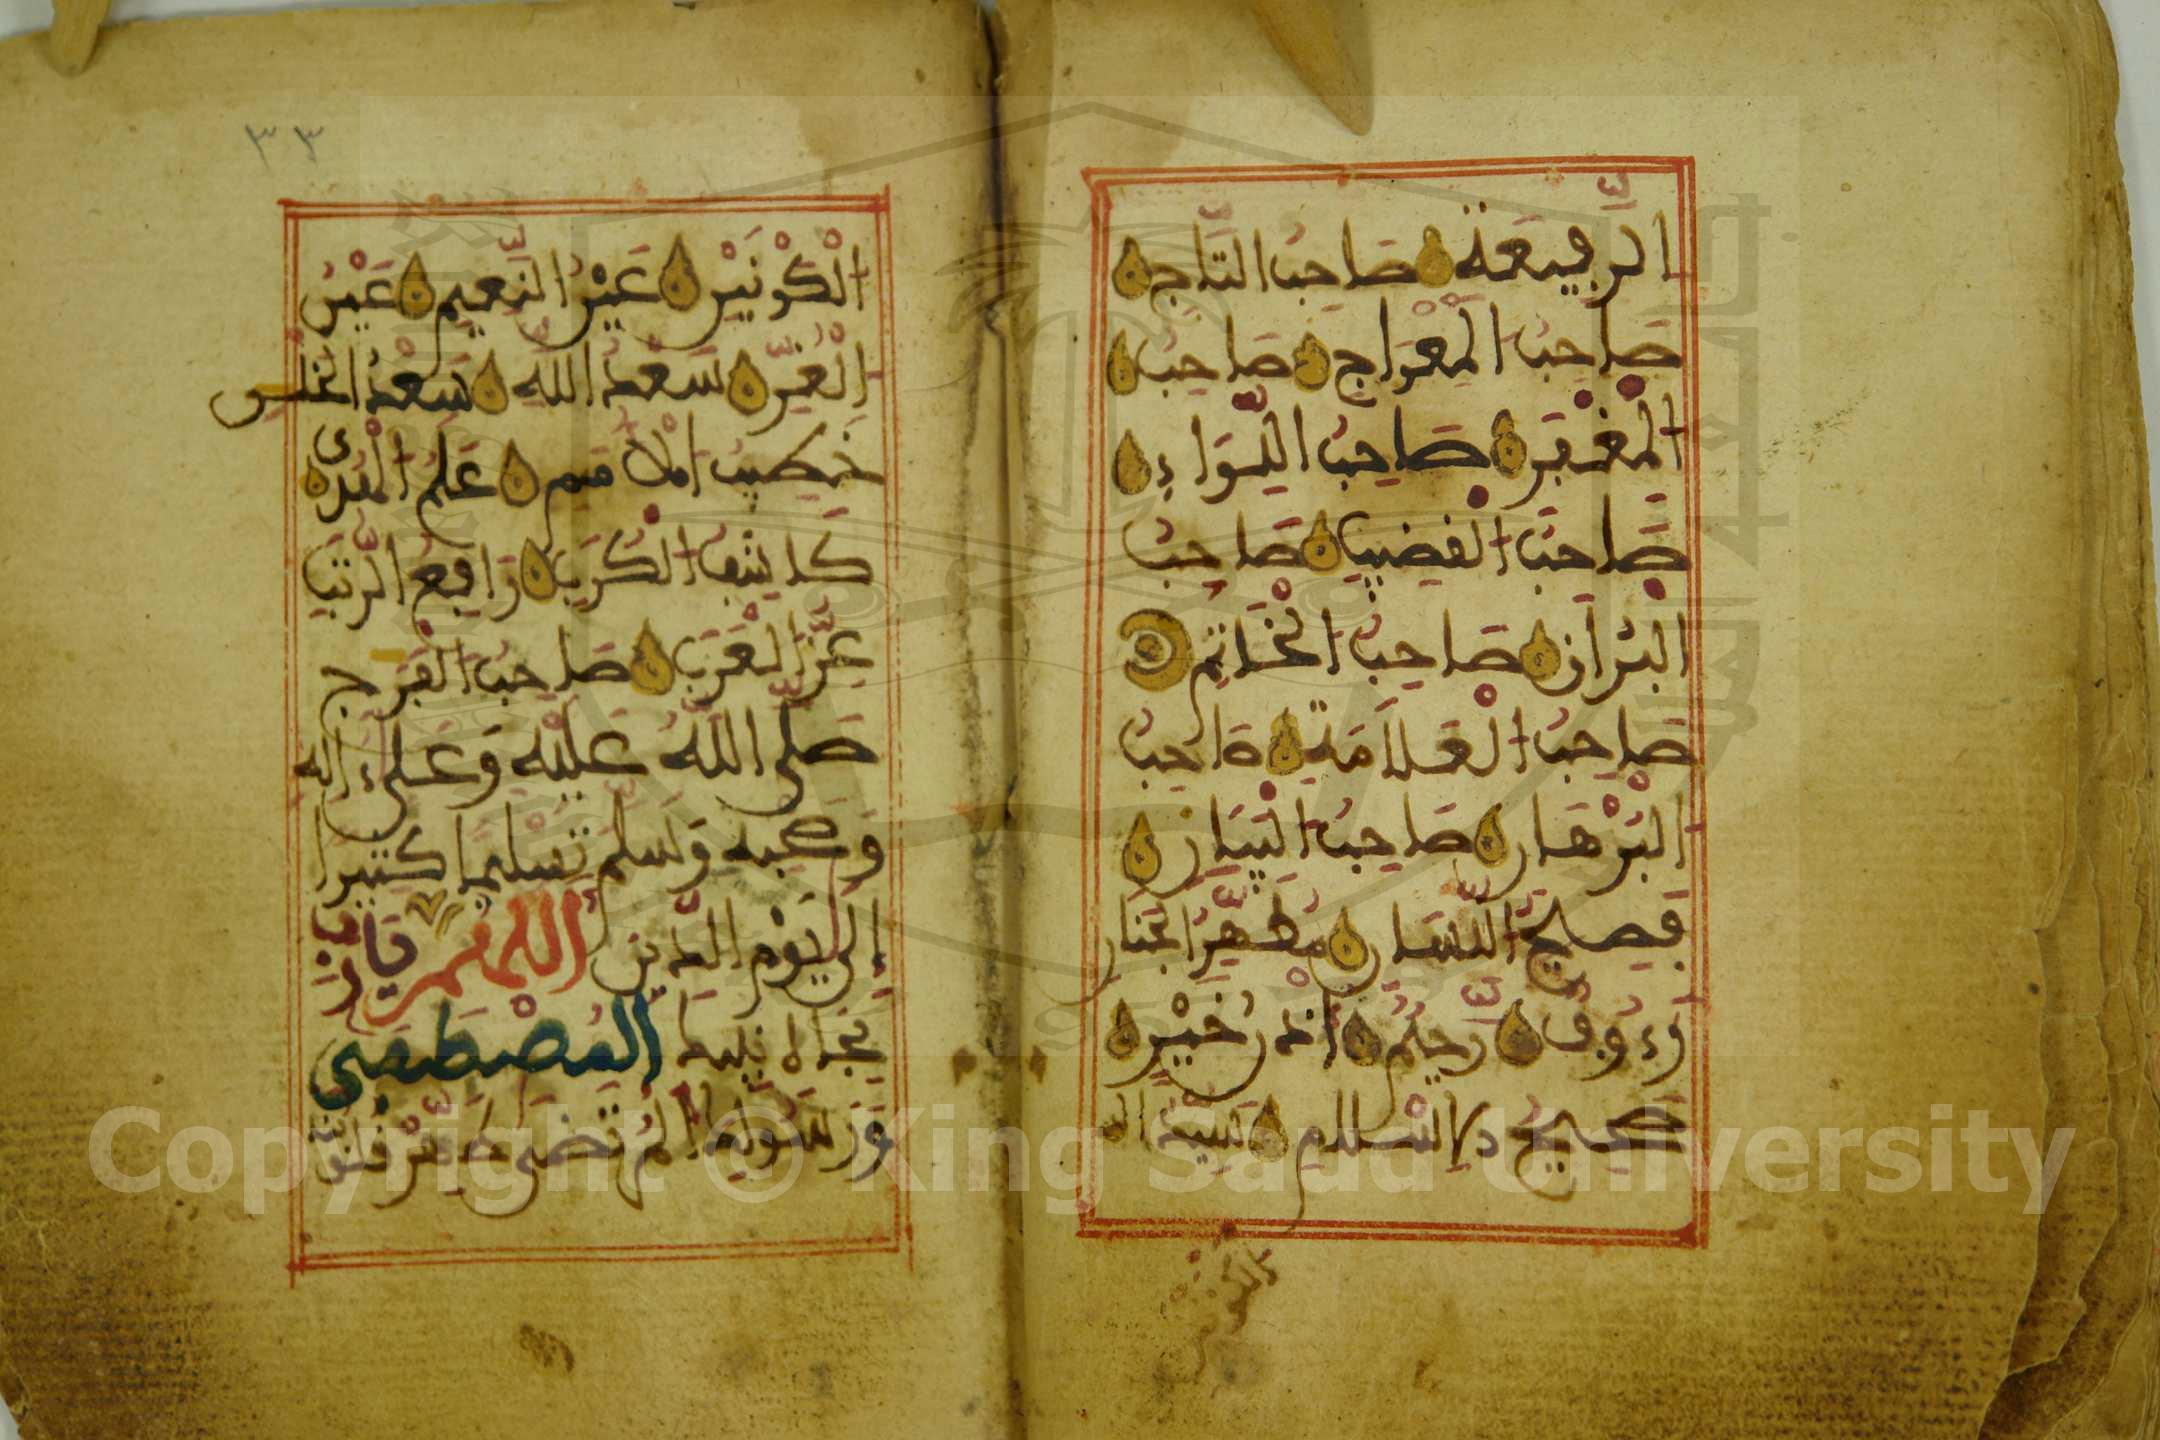 الرَّفِيعَةِ صَاحِبُ التَّاجِ
صَاحِبُ الْمِعْرَاجِ صَاحِبُ
الْمِغْفَرِ صَاحِبُ اللِّوَاءِ
صَاحِبُ الْقَضِيبِ صَاحِبُ
الْبُرَاقِ صَاحِبُ الْخَاتِمِ
صَاحِبُ الْعَلَامَةِ صَاحِبُ
الْبُرْهَانِ صَاحِبُ الْبَيَانِ
فَصِيحُ اللِّسَانِ مُطَهَّرُ الْجَنَانِ
رَءُوفٌ رَّحِيمٌ أُذْنُ خَيْرٍ
صَحِيحُ الْإِسْلَامِ سَيِّدُ
الكونين
٣٣
الْكَوْنَيْنِ عَيْنُ النَّعِيمِ عَيْنُ
الْغُرِّ سَعْدُ اللهِ سَعْدُ الْخَلْقِ
خَطِيبُ الْأُمَمِ عَلَمُ الْهُدَى
كَاشِفُ الْكُرَبِ رَافِعُ الرُّتَبِ
عِزُّ الْعَرَبِ صَاحِبُ الْفَرَجِ
صَلَّى اللَّهُ عَلَيْهِ وَعَلَى ءَالِهِ
وَصَحْبِهِ وَسَلَّمَ تَسْلِيمًا كَثِيرًا
إِلَى يَوْمِ الدِّينِ اللهم يَارَبِّ
بِجَاهِ نَبِيِّكَ الْمُصْطَفَى
وَرَسُولِكَ الْمُرْتَضَى طَهِّرْ قُلُوبَنَا
Copyright © King Saud University